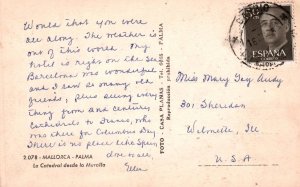 Would that you were
all along. The weather is
out of this world. My
hotel is right on the sea
Barcelona was wonderful
and I saw so many old
friends, plus seeing every
thing from 2nd century
Cathedrals to Franco, who
was there for Columbus Day.
There is no place like Spain
Love to all,
Ellen
2.078 - MALLORCA - PALMA
La Catedral desde la Muralla
FOTO - CASA PLANAS - Tel. - PALMA
Reproducción prohibida
ESPAÑA
Miss Mary Gay
801 Sheridan
Wilmette, Ill
U.S.A